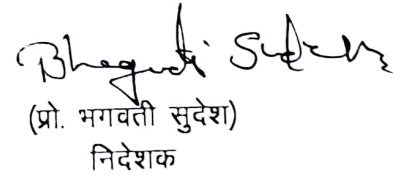 Bhagwati Sudesh
(प्रो. भगवती सुदेश)
निदेशक